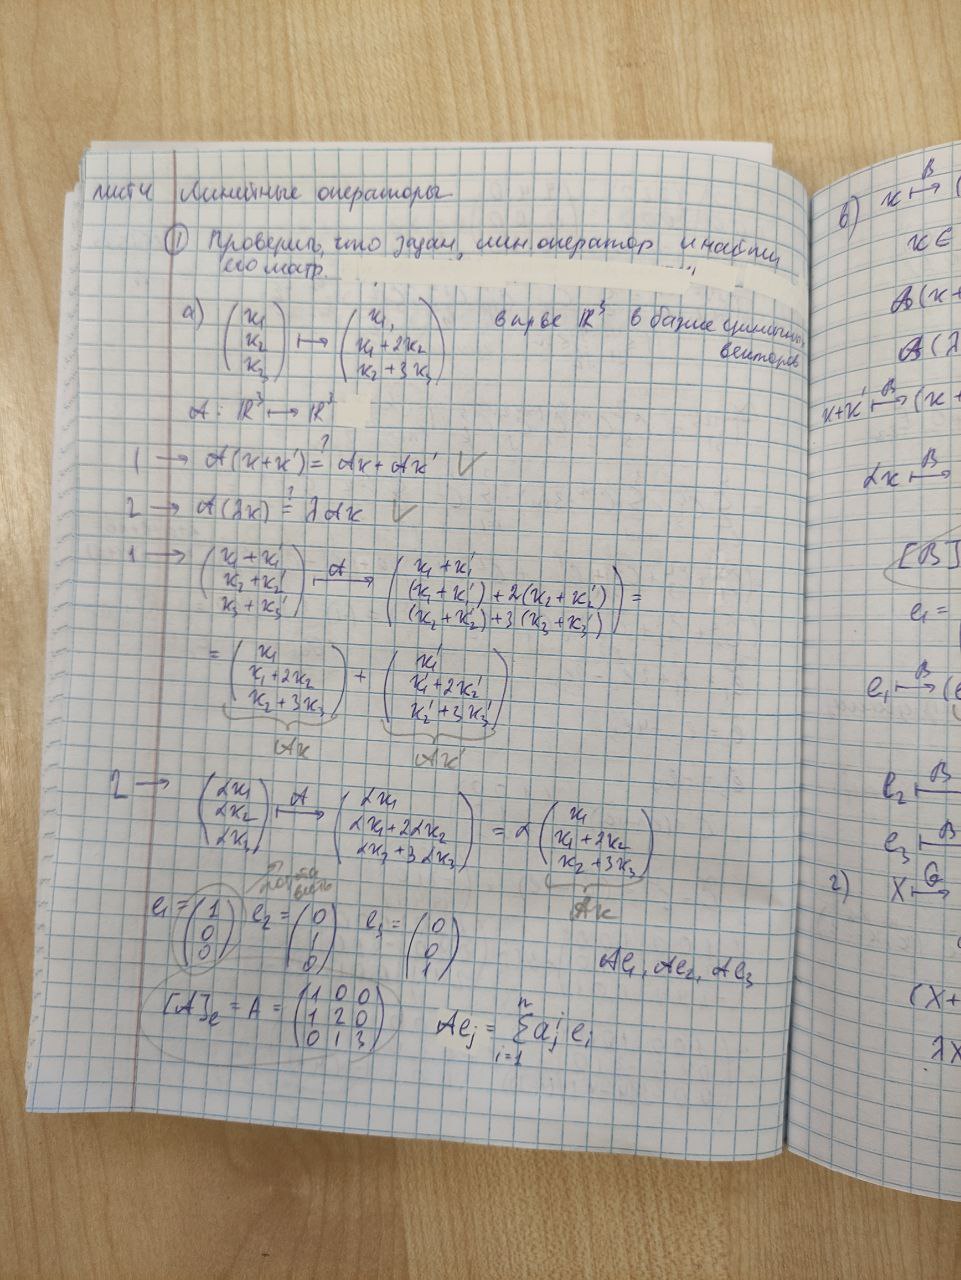 лист 4 Линейные операторы
① Проверить, что задан лин оператор и найти
его матр.
а) (x₁ x₂ x₃) ↦ (x₁, x₁+2x₂ x₂+3x₃) в пр-ве ℝ³ в базисе единичных
векторов
A : ℝ³ ↦ ℝ³
1 → A(x+x′) ≟ Ax+Ax′ ✓
2 → A(λx) ≟ λAx ✓
1 → (x₁+x₁′ x₂+x₂′ x₃+x₃′) A↦ (x₁+x₁′ (x₁+x₁′)+2(x₂+x₂′) (x₂+x₂′)+3(x₃+x₃′)) =
= (x₁ x₁+2x₂ x₂+3x₃) + (x₁′ x₁′+2x₂′ x₂′+3x₃′)
Ax Ax′
2 → (αx₁ αx₂ αx₃) A↦ (αx₁ αx₁+2αx₂ αx₂+3αx₃) = α (x₁ x₁+2x₂ x₂+3x₃)
Ax
e₁ = (1 0 0) e₂ = (0 1 0) e₃ = (0 0 1)
Ae₁, Ae₂, Ae₃
[A]ₑ = A = (1 0 0 1 2 0 0 1 3) Aeⱼ = ⁿ∑ᵢ₌₁ aⁱⱼ eᵢ
в) x B↦ (
x ∈
B(x+
B(λ
x+x′ B↦ (x+
αx B↦
[B]
e₁ =
e₁ B↦ (
e₂ B↦
e₃ B↦
г) X G↦
(X+
λX